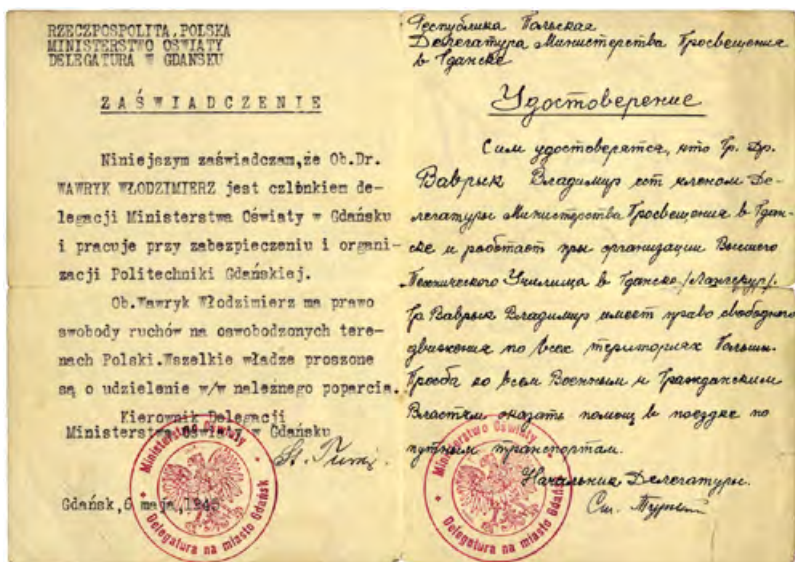 RZECZPOSPOLITA POLSKA
MINISTERSTWO OŚWIATY
DELEGATURA W GDAŃSKU
ZAŚWIADCZENIE
Niniejszym zaświadczam,że Ob.Dr.
WAWRYK WŁODZIMIERZ jest członkiem de-
legacji Ministerstwa Oświaty w Gdańsku
i pracuje przy zabezpieczeniu i organi-
zacji Politechniki Gdańskiej.
Ob.Wawryk Włodzimierz ma prawo
swobody ruchów na oswobodzonych tere-
nach Polski.Wszelkie władze proszone
są o udzielenie w/w należnego poparcia.
Kierownik Delegacji
Ministerstwa Oświaty w Gdańsku
St. Turski
Gdańsk,6 maja,1945
Ministerstwo Oświaty
Delegatura na miasto Gdańsk
Республика Польская
Делегатура Министерства Просвещения
в Гданске
Удостоверение
Сим удостоверятся, что Гр. Др.
Ваврык Владимир ест членом Де-
легатуры Министерства Просвещения в Гдан-
ске и работает при организации Высшего
Технического Училища в Гданске /Лангфур/.
Гр Ваврык Владимир имеет право свободного
движения по всех териториях Польши.
Просба ко всем Военным и Гражданским
Властям оказать помощ в поездке по
путным транспортам.
Начальник Делегатуры.
Ст. Турский
Ministerstwo Oświaty
Delegatura na miasto Gdańsk